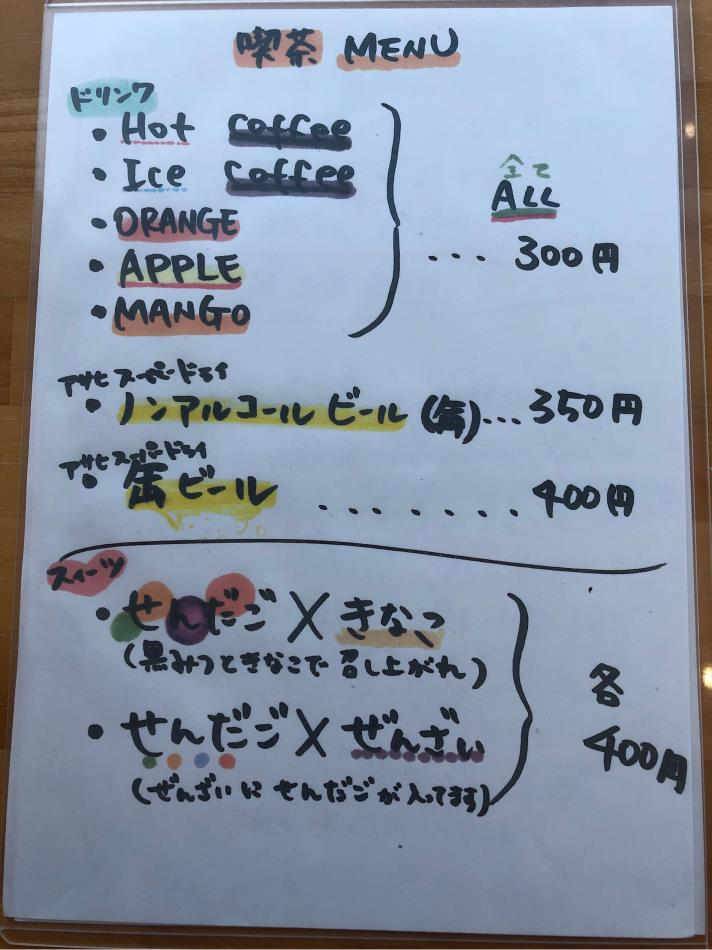 喫茶 MENU
ドリンク
• Hot coffee
• Ice coffee
• ORANGE
• APPLE
• MANGO
全て
ALL
... 300円
アサヒスーパードライ
• ノンアルコールビール (缶)...350円
アサヒスーパードライ
• 缶ビール ........ 400円
スイーツ
• せんだご X きなこ
(黒みつときなこで召し上がれ)
• せんだご X ぜんざい
(ぜんざいにせんだごが入ってます)
各
400円